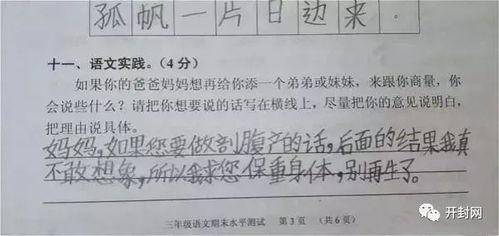 孤帆一片日边来。
十一、语文实践。(4分)
如果你的爸爸妈妈想再给你添一个弟弟或妹妹，来跟你商量，你
会说些什么？请把你想要说的话写在横线上，尽量把你的意见说明白，
把理由说具体。
妈妈，如果您要做剖腹产的话，后面的结果我真
不敢想象，所以我求您保重身体，别再生了。
三年级语文期末水平测试 第3页 (共6页)
开封网